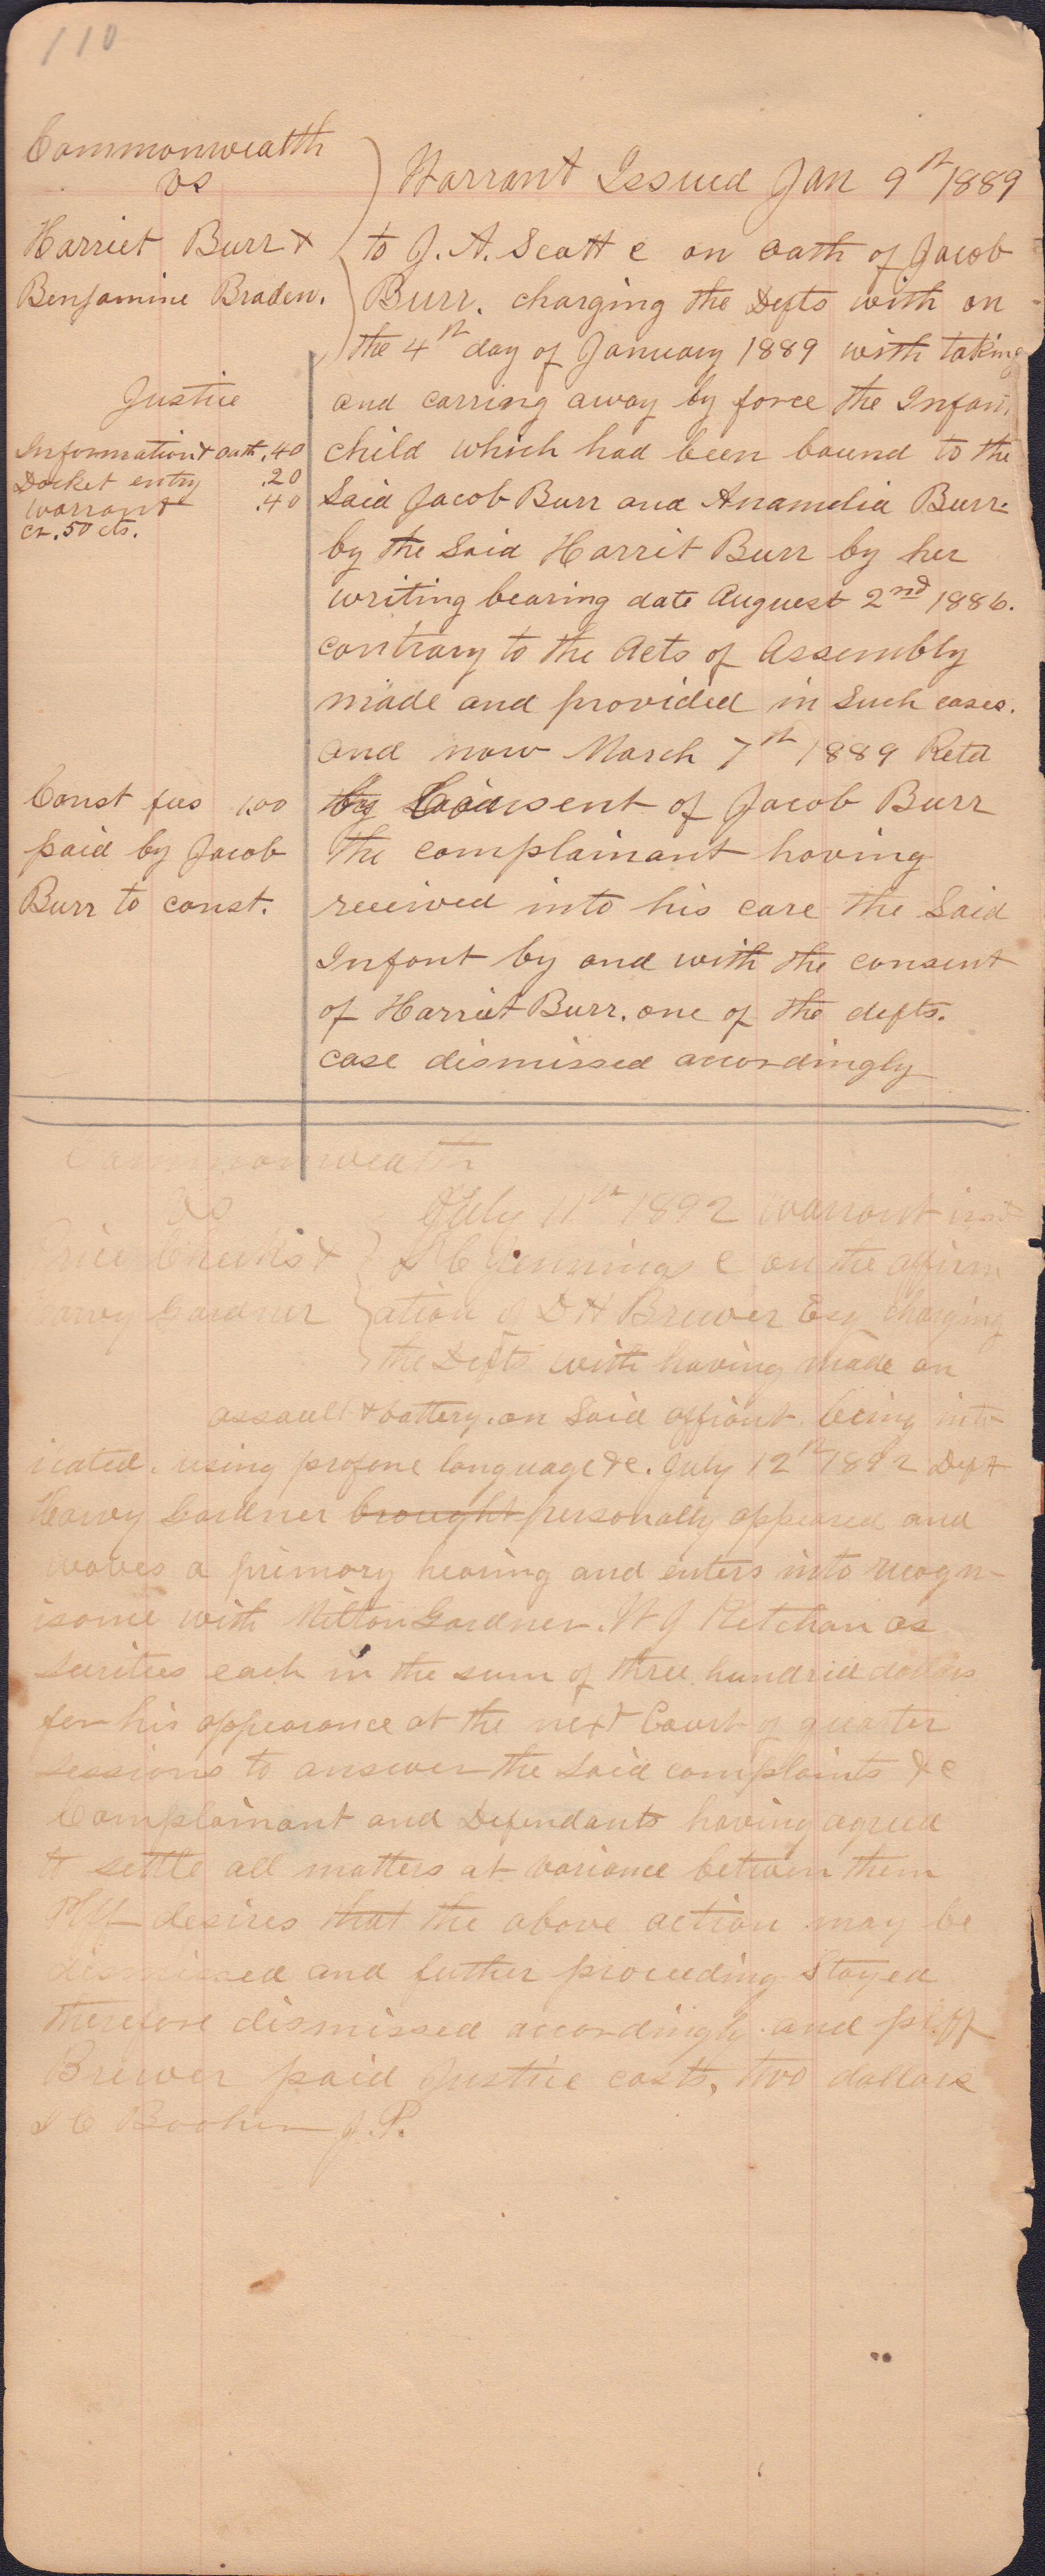 110
Commonwealth
vs
Harriet Burr &
Benjamine Braden.
Warrant Issued Jan 9th 1889
to J. A. Scott c on oath of Jacob
Burr. charging the Defts with on
the 4th day of January 1889 with taking
and carring away by force the Infant
child which had been bound to the
Said Jacob Burr and Anamelia Burr.
by the Said Harrit Burr by her
writing bearing date August 2nd 1886.
contrary to the Acts of Assembly
made and provided in Such cases.
and now March 7th 1889 Retd
by Consent of Jacob Burr
the complainant having
received into his care the Said
Infant by and with the consent
of Harriet Burr. one of the defts.
case dismissed accordingly
Justice
Information & oath .40
Docket entry .20
Warrant .40
cr. 50 cts.
Const fees 1.00
paid by Jacob
Burr to const.
Commonwealth
vs
Cheeks &
Harvy Gardner
July 11th 1892 warrant issd
S C Jennings c on the affirm
ation of D H Brewer Esq charging
the Defts with having made an
assault & battery. on Said affiant being into
icated. using profane language &c. July 12th 1892 Deft
Harvy Gardner brought personally appeared and
waves a primory hearing and enters into recogn-
isome with Milton Gardner. W J Ketchan as
surities each in the sum of three hundred dollars
for his appearance at the next Court of quarter
sessions to answer the Said complaints &c
Complainant and Defendants having agreed
to settle all matters at variance between them
Pltff desires that the above action may be
dismissed and futher proceeding Stayed
therefore dismissed accordingly. and pltff
Brewer paid Justice costs, two dollars
S C Booher J. P.